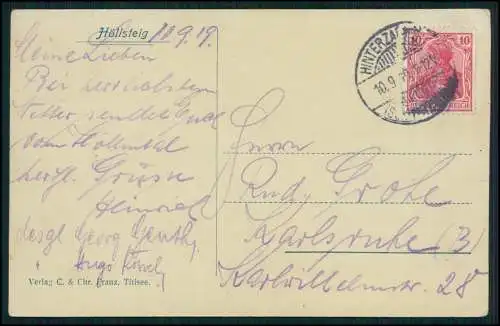 Höllsteig 10.9.19.
Meine Lieben
Bei herrlichstem
Wetter sendet Euch
vom Höllental
herzl. Grüsse
Heinrich
desgl. Georg
Hugo
Verlag C. & Chr. Franz, Titisee.
HINTERZARTEN
10.9.
10
Herrn
Rud. Grohe
Karlsruhe (B)
Karlwilhelmstr. 28